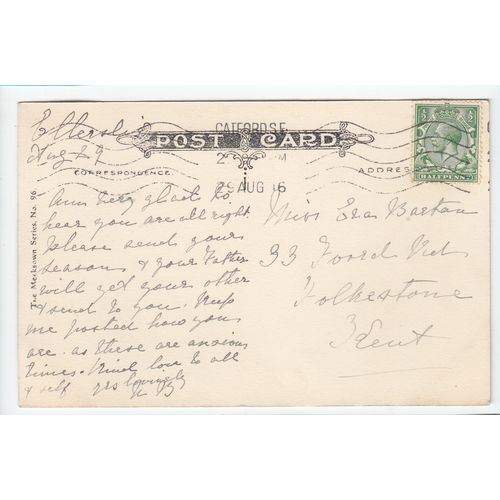 Aug 29
CATFORD.S.E.
29 AUG 16
POST CARD
CORRESPONDENCE.
ADDRESS
HALFPENNY
The Mecksown Series. No. 96
Am very glad to
hear you are all right
Please send yours
& your Father
will get yours other
& send to you. Keep
me posted how you
are. as these are anxious
times. Kind love to all
& self yrs lovingly
Miss Eva Barton
33 Foord
Folkestone
Kent